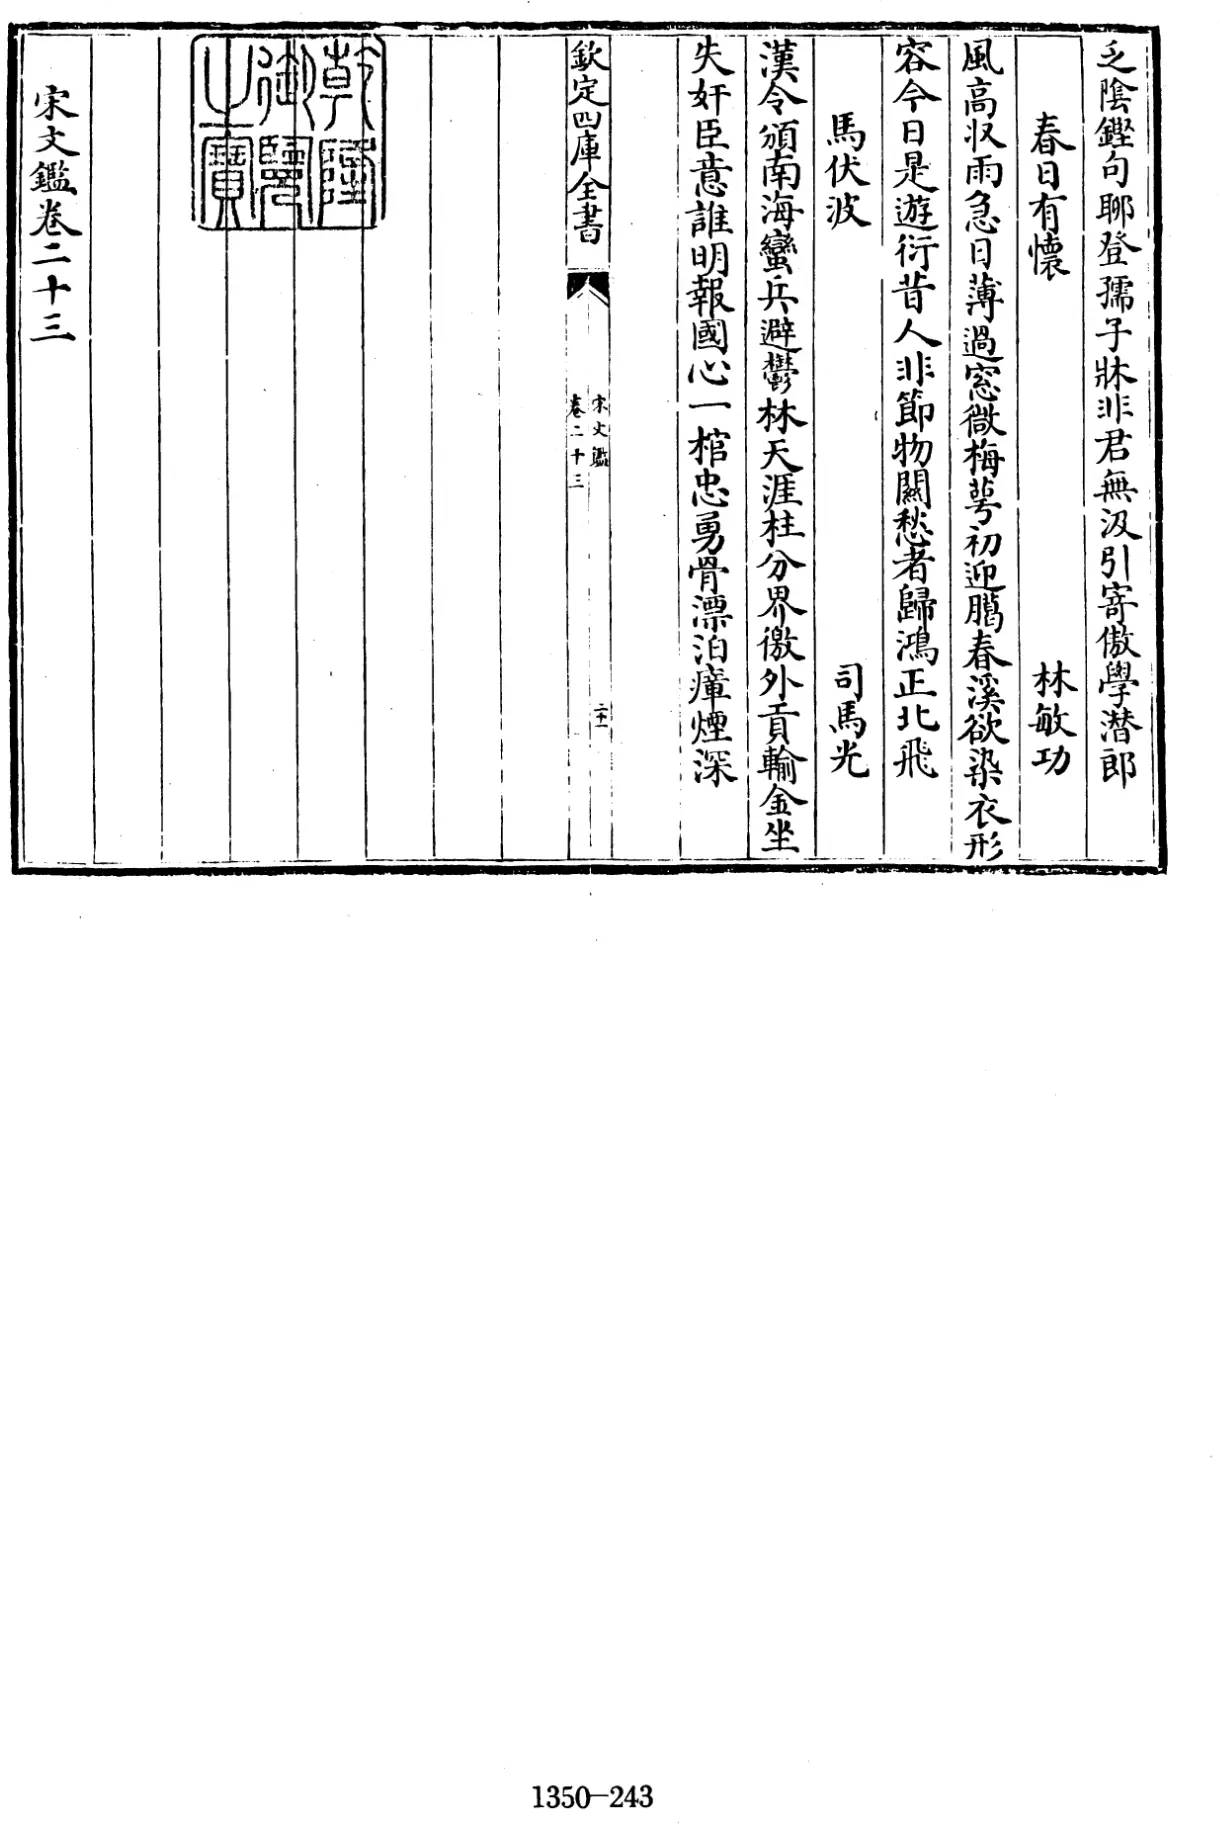 乏陰鏗句聊登孺子牀非君無汲引寄傲學潛郎
春日有懷 林敏功
風高収雨急日薄過窓微梅萼初迎臈春溪欲染衣形
容今日是遊衍昔人非節物關愁者歸鴻正北飛
馬伏波 司馬光
漢令頒南海蠻兵避鬱林天涯柱分界徼外貢輸金坐
失奸臣意誰明報國心一棺忠勇骨漂泊瘴煙深
欽定四庫全書
宋文鑑
卷二十三
二十一
乾隆
御覽
之寶
宋文鑑卷二十三
1350-243